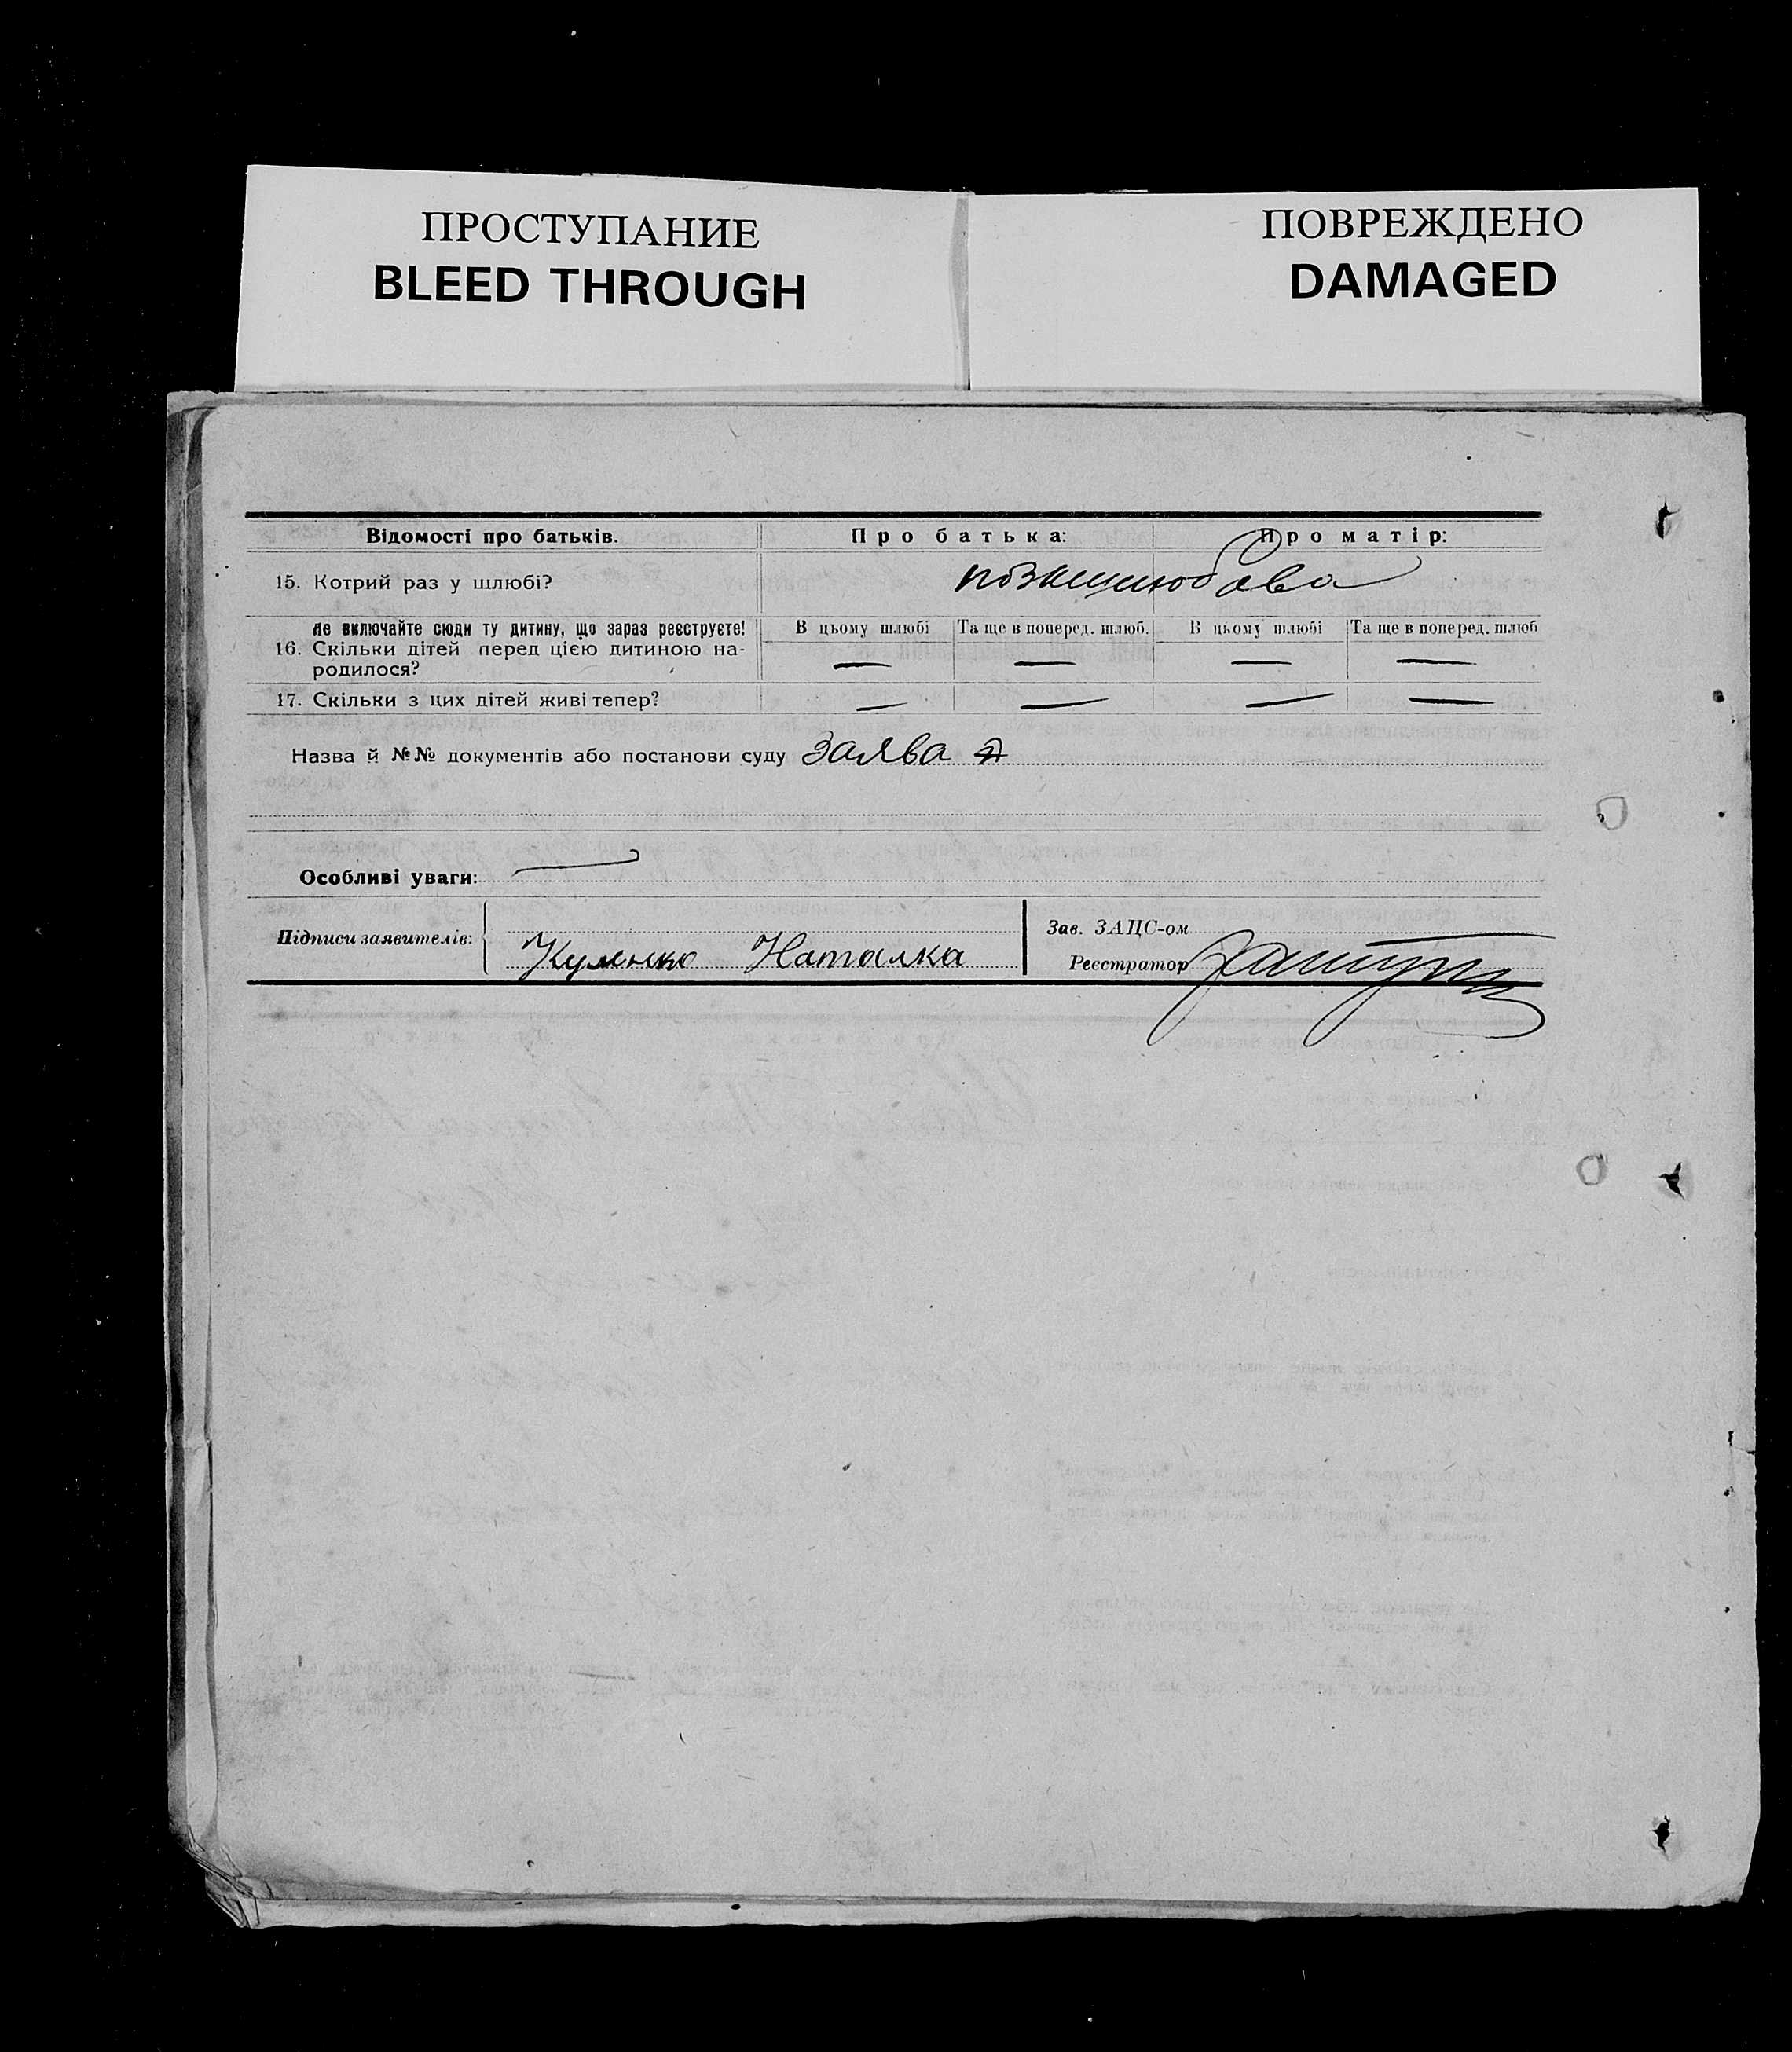 ПРОСТУПАНИЕ
BLEED THROUGH
ПОВРЕЖДЕНО
DAMAGED
Відомості про батьків. Про батька: Про матір:
15. Котрий раз у шлюбі? позашлюбова
не включайте сюди ту дитину, що зараз реєструєте! В цьому шлюбі Та ще в поперед. шлюб. В цьому шлюбі Та ще в поперед. шлюб
16. Скільки дітей перед цією дитиною на- — — — —
родилося?
17. Скільки з цих дітей живі тепер? — — — —
Назва й №№ документів або постанови суду Заява
Особливі уваги: —
Зав. ЗАЦС-ом
Підписи заявителів: Куленко Наталка
Реєстратор